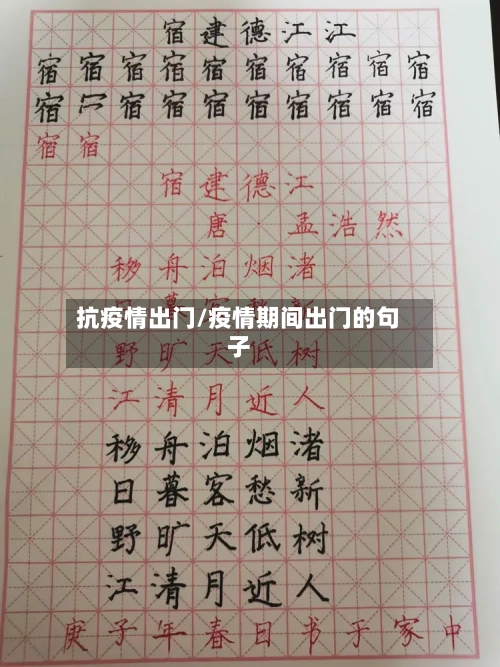 宿建德江江
宿宿宿宿宿宿宿宿宿宿
宿宿宿宿宿宿宿宿宿
宿宿
宿建德江
唐·孟浩然
移舟泊烟渚
日暮客愁新
抗疫情出门/疫情期间出门的句
子
野旷天低树
江清月近人
移舟泊烟渚
日暮客愁新
野旷天低树
江清月近人
庚子年春日书于家中